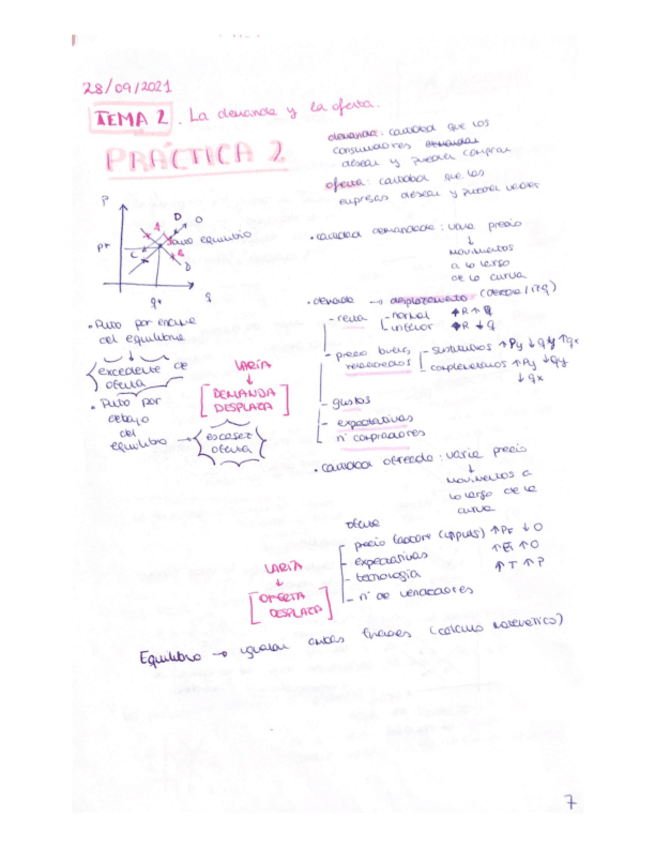 28/09/2021
TEMA 2. La demanda y la oferta.
PRÁCTICA 2
demanda: cantidad que los
consumidores
desean y pueden comprar
oferta: cantidad que las
empresas desean y pueden vender
P
D O
A
equilibrio
P*
C B
D
q* q
• Punto por encima
del equilibrio
excedente de
oferta
• Punto por
debajo
del
equilibrio → escasez
oferta
VARÍA
↓
DEMANDA
DESPLAZA
• cantidad demandada: varía precio
↓
movimientos
a lo largo
de la curva
• demanda → desplazamiento (derecha/izq)
- renta - normal ↑R ↑q
- inferior ↑R ↓q
- precio bienes
relacionados
- sustitutivos ↑Py ↓qy ↑qx
- complementarios ↑Py ↓qy
↓qx
- gustos
- expectativas
- nº compradores
• cantidad ofrecida: varía precio
↓
movimientos a
lo largo de la
curva
oferta
VARÍA
↓
OFERTA
DESPLAZA
- precio factore (inputs) ↑PF ↓O
- expectativas ↑O
- tecnología ↑T
- nº de vendedores
Equilibrio → igualar ambas funciones (cálculo matemático)
7